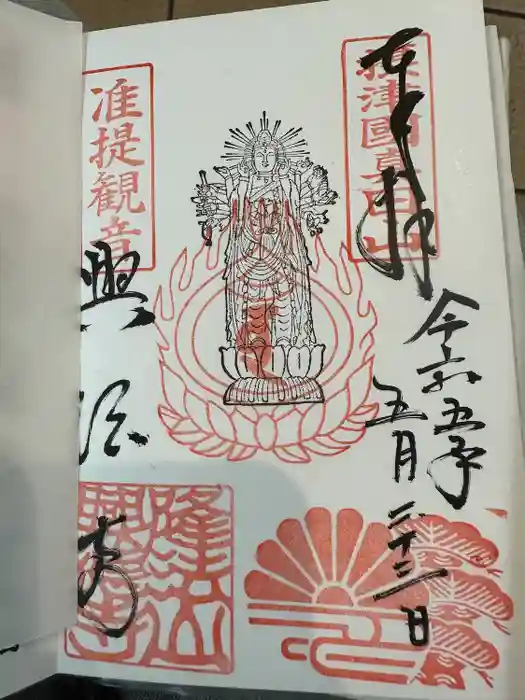 摂津國
奉拝
令和五年
五月二十三日
准提観音
興徳寺